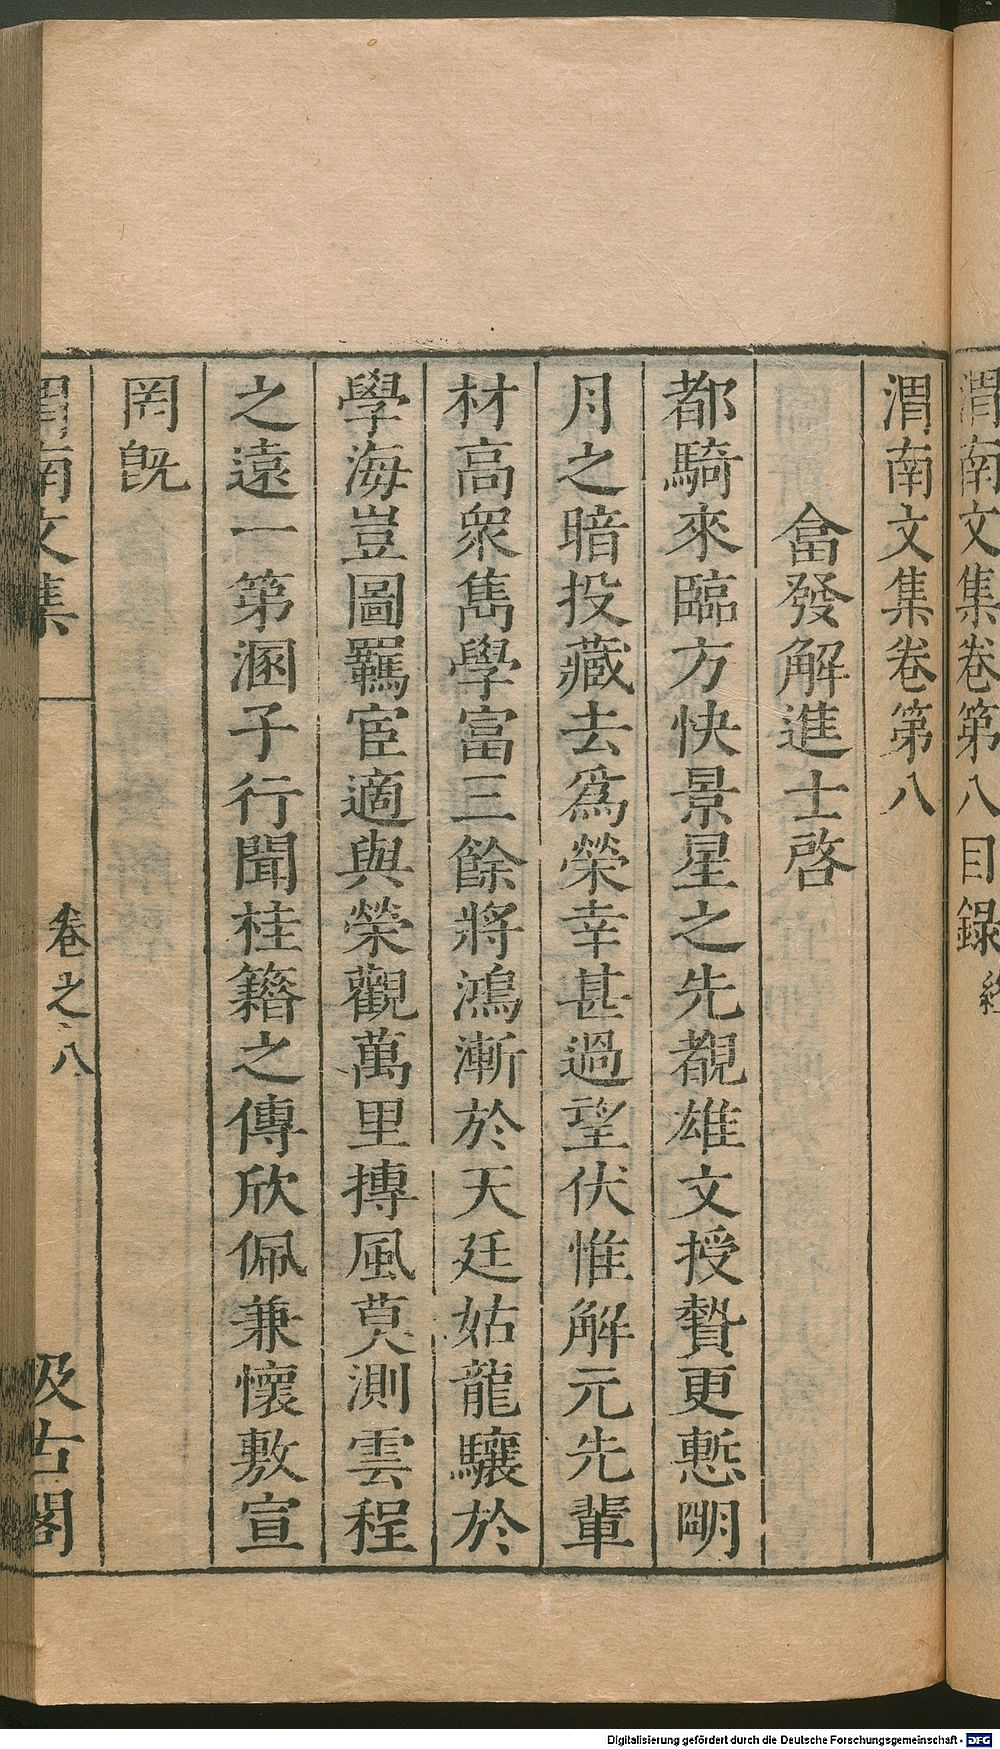 渭南文集卷第八目録終
渭南文集卷第八
畣發解進士啓
都騎來臨方快景星之先覩雄文授贄更慙朙
月之暗投藏去爲榮幸甚過望伏惟解元先輩
材高衆雋學富三餘將鴻漸於天廷姑龍驤於
學海豈圖羈宦適與榮觀萬里摶風莫測雲程
之遠一第溷子行聞桂籍之傳欣佩兼懷敷宣
罔旣
渭南文集 卷之八 汲古閣
Digitalisierung gefördert durch die Deutsche Forschungsgemeinschaft - DFG